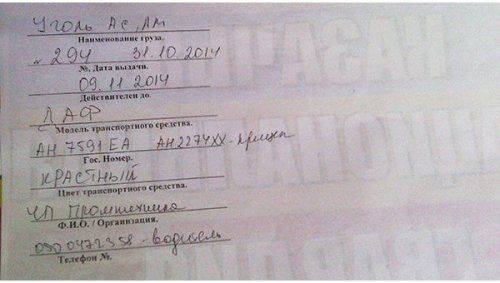 Уголь АС, АМ
Наименование груза.
№ 294 31.10.2014
№, Дата выдачи.
09.11 2014
Действителен до.
ДАФ
Модель транспортного средства.
АН 7591 ЕА АН2274ХХ-прицеп
Гос. Номер.
КРАСТНЫЙ
Цвет транспортного средства.
ЧП Промтехника
Ф.И.О. / Организация.
0900472358 - водитель
Телефон №.